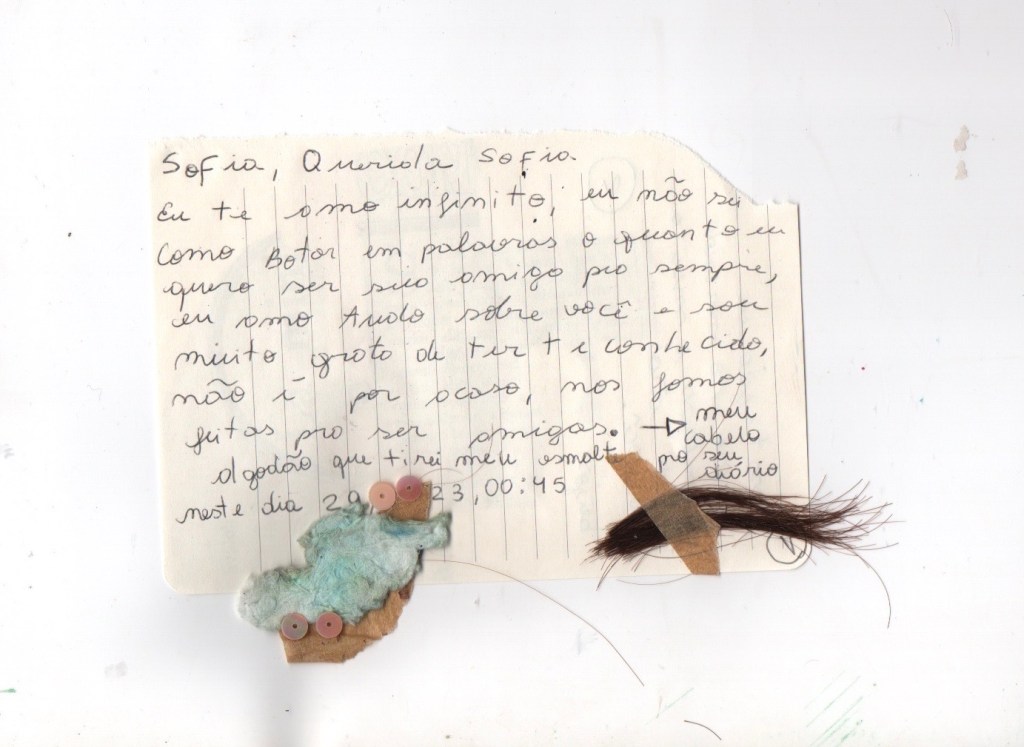 Sofia, Querida Sofia
Eu te amo infinito, eu não sei
como Botar em palavras o quanto eu
quero ser sua amiga pra sempre,
eu amo tudo sobre você e sou
muito grata de ter te conhecido,
não é por acaso, nos fomos
feitas pra ser amigas. → meu
cabelo
algodão que tirei meu esmalte pro seu
diário
neste dia 29, 23, 00:45